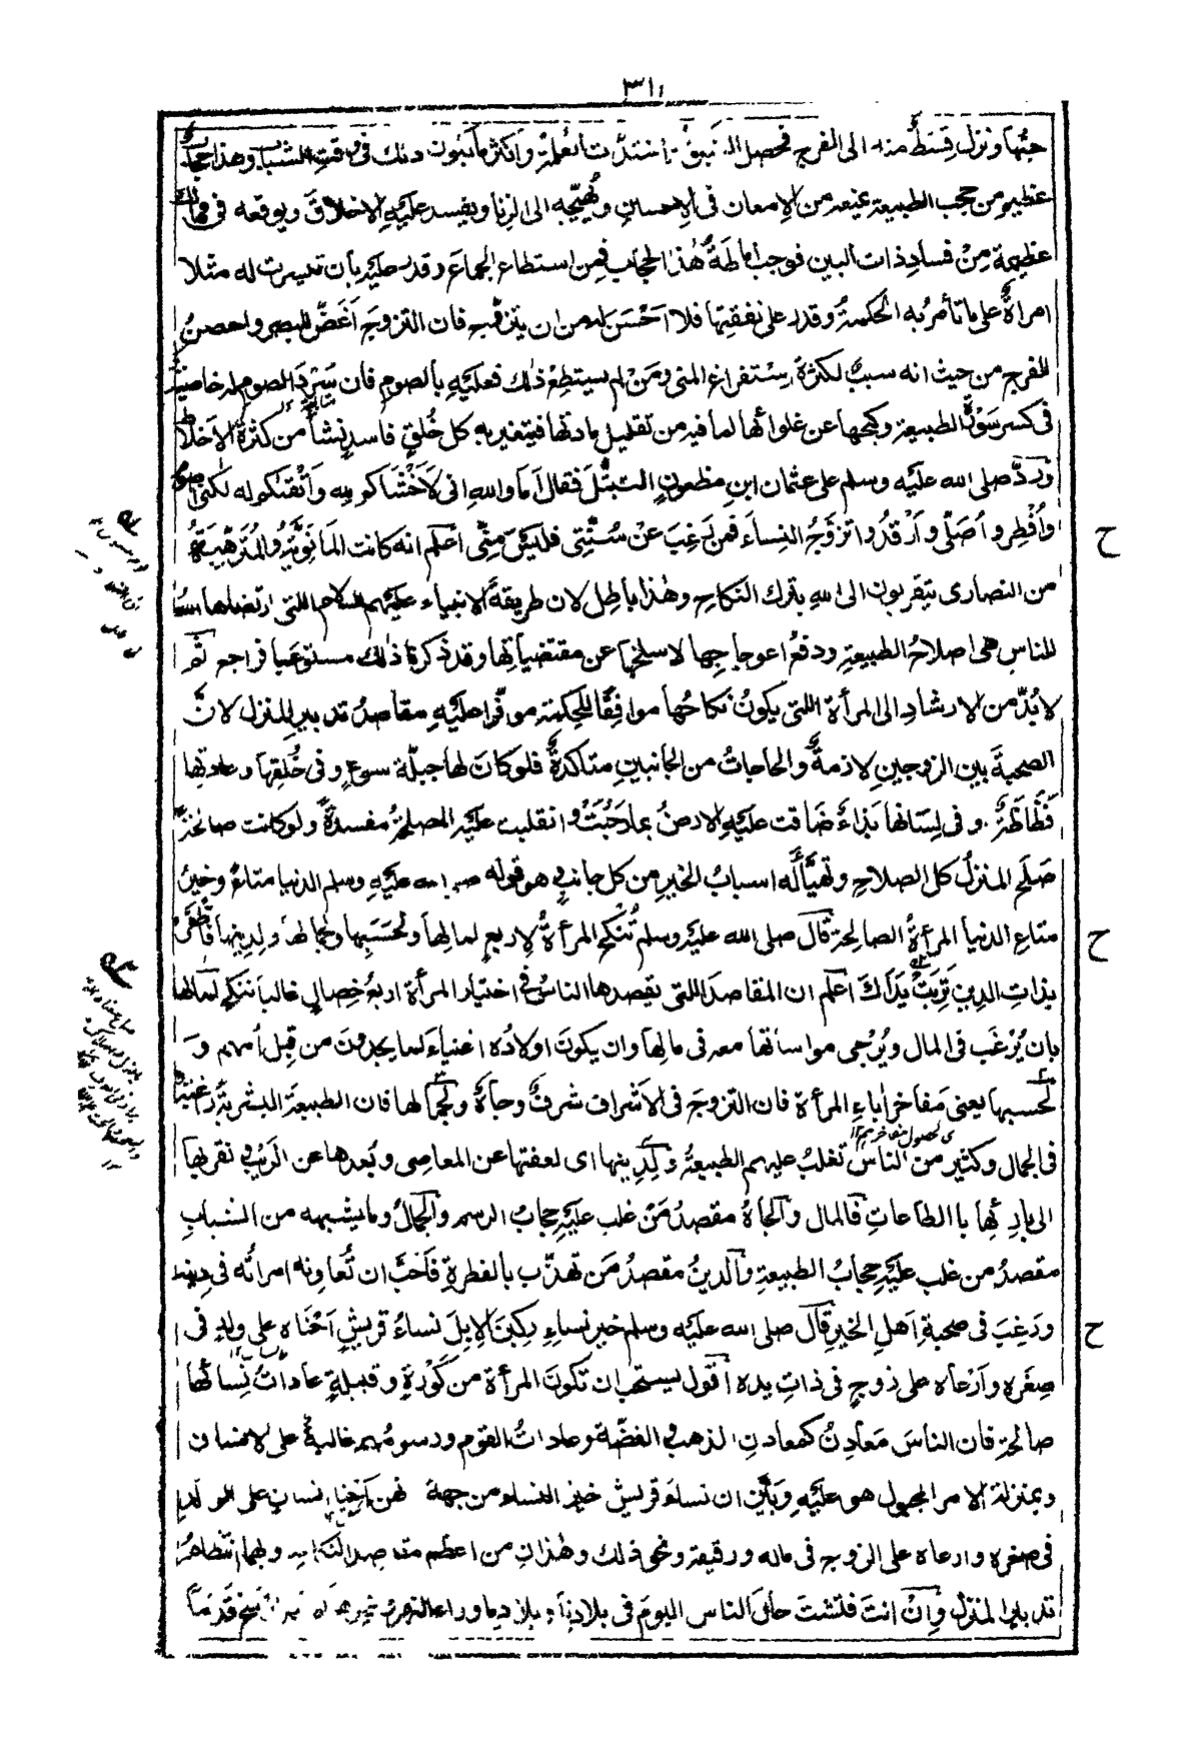 ٣١١
حبّها ونزل قِسطٌ منه الى الفرج فحصل الشبق واشتدّت الغُلمة واكثر ما يكون ذلك فى وقت الشباب وهذا حجابٌ
عظيم من حجب الطبيعة يمنعه من الامعان فى الاحسان ويُهيّجه الى الزنا ويفسد عليه الاخلاق ويوقعه فى مهالك
عظيمة مِنْ فساد ذات البين فوجب اماطةُ هٰذا الحجاب فمن استطاع الجماع وقدر عليه بأن تيسرت له مثلا
امرأةٌ على ما تأمرُ به الحكمةُ وقدر على نفقتها فلا اَحْسَنَ له من ان يتزوج فان التزوج اَغَضُّ للبصر واحصنُ
للفرج من حيث انه سببٌ لكثرة استفراغ المنى ومَنْ لم يستطِعْ ذلك فعليه بالصوم فان سَرْدَ الصوم له خاصيةٌ
فى كسر سَوْرة الطبيعة وكبحها عن غلوائها لما فيه من تقليل مادتها فيتغير به كل خُلقٍ فاسدٍ نشأ من كثرة الاخلاط
وردّ صلى الله عليه وسلم على عثمان ابن مظعونٍ التبتُّلَ فقال اَمَا واللهِ انى لاَخْشَاكم لله واَتْقٰىكم له لٰكنى اصوم
واُفْطِر واُصَلّى واَرْقُدُ واتزوّجُ النساء فمن رَغِبَ عن سُنّتِى فليسَ مِنّى اعلم انه كانت المَانَوِيَّةُ والمُتَرهِّبَةُ
من النصارى يتقربون الى الله بترك النكاح وهٰذا باطل لان طريقة الانبياء عليهم السلام اللتى ارتضاها الله
للناس هى اصلاحُ الطبيعة ودفعُ اعوجاجها لا سلخُها عن مقتضياتها وقد ذكرنا ذٰلك مستوعبا فراجع ثم
لا بُدّ من الارشاد الى المرأة اللتى يكونُ نكاحُها موافِقًا للحكمة موفّرا عليه مقاصدُ تدبير المنزل لانّ
الصحبةَ بين الزوجين لازمةٌ والحاجاتُ من الجانبين متأكدةٌ فلو كانَ لها جبلّة سوءٍ وفى خُلقها وعادتها
فَظَاظَةٌ وفى لِسانها بَذَاءٌ ضَاقت عليه الارضُ بما رَحُبَتْ وانقلبت عليه المصلحةُ مفسدةً ولو كانت صالحةً
صَلَح المنزلُ كل الصلاح وتهيَّأ له اسبابُ الخير من كل جانبٍ وهو قوله صلى الله عليه وسلم الدنيا متاعٌ وخيرُ
متاعِ الدنيا المرأةُ الصالحة قال صلى الله عليه وسلم تُنْكح المرأةُ لاربعٍ لمالها ولحَسَبِها ولجمالها ولدينها فاظفر
بذات الدين تَرِبَتْ يَدَاكَ اعلم ان المقاصدَ اللتى يقصدها الناسُ فى اختيار المرأة اربعُ خصالٍ غالبا تنكح لمالها
بان يُرْغَب فى المال ويُرْجى مواساتها معه فى مالها وان يكونَ اولادُه اغنياءَ لما يجدون من قِبل اُمهم و
لحسبها يعنى مفاخر اٰباءِ المرأة فان التزوجَ فى الاشراف شرفٌ وجاهٌ ولجمالها فان الطبيعة البشرية راغبةٌ
فى الجمال وكثير من الناس تغلبُ عليهم الطبيعةُ ولدينها اى لعفتها عن المعاصى وبُعدها عن الريب وتقربها
الى بارئها بالطاعات فالمال والجاهُ مقصدُ مَنْ غلب عليه حجابُ الرسم والجمالُ وما يشبهه من الشباب
مقصدُ من غلب عليه حجابُ الطبيعة والدينُ مقصدُ مَن تهذّب بالفطرة فاَحَبَّ ان تُعاونه امرأتُه فى دينه
ورَغِبَ فى صحبة اَهل الخير قال صلى الله عليه وسلم خير نساءٍ ركبنَ الابلَ نساءُ قريشٍ اَحْنَاه على ولدٍ فى
صِغَره واَرْعاه على زوجٍ فى ذات يده اقول يستحب ان تكونَ المرأة من كُوْرةٍ وقبيلةٍ عاداتُ نِسائها
صالحة فان الناسَ مَعَادِنُ كمعادن الذهب والفضّة وعاداتُ القوم ورسومُهم غالبةٌ على الانسان
وبمنزلة الامر المجبول هو عليه وبَيَّن ان نساء قريش خير النساء من جهة انهن اَحْنٰى انسانٍ على الولد
فى صغره وارعاه على الزوج فى ماله ورقيقه ونحو ذلك وهٰذان من اعظم مقاصد النكاح وبهما انتظامُ
تدبير المنزل وانْ انتَ فتّشتَ حالَ الناس اليومَ فى بلادنا وبلاد ماوراء النهر وغيرها لم تجد ارسخ قَدَمًا
ح
ح
ح